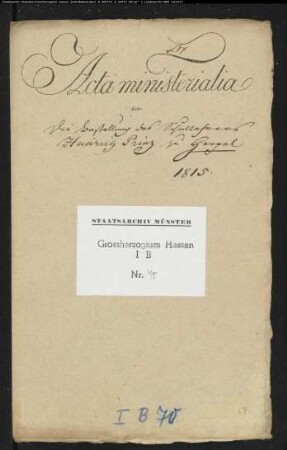 Acta ministerialia
Die Bestellung des Schullehrers
Heinrich Prinz zu
1815.
STAATSARCHIV MÜNSTER
Grossherzogtum Hessen
I B
Nr.
I B 70